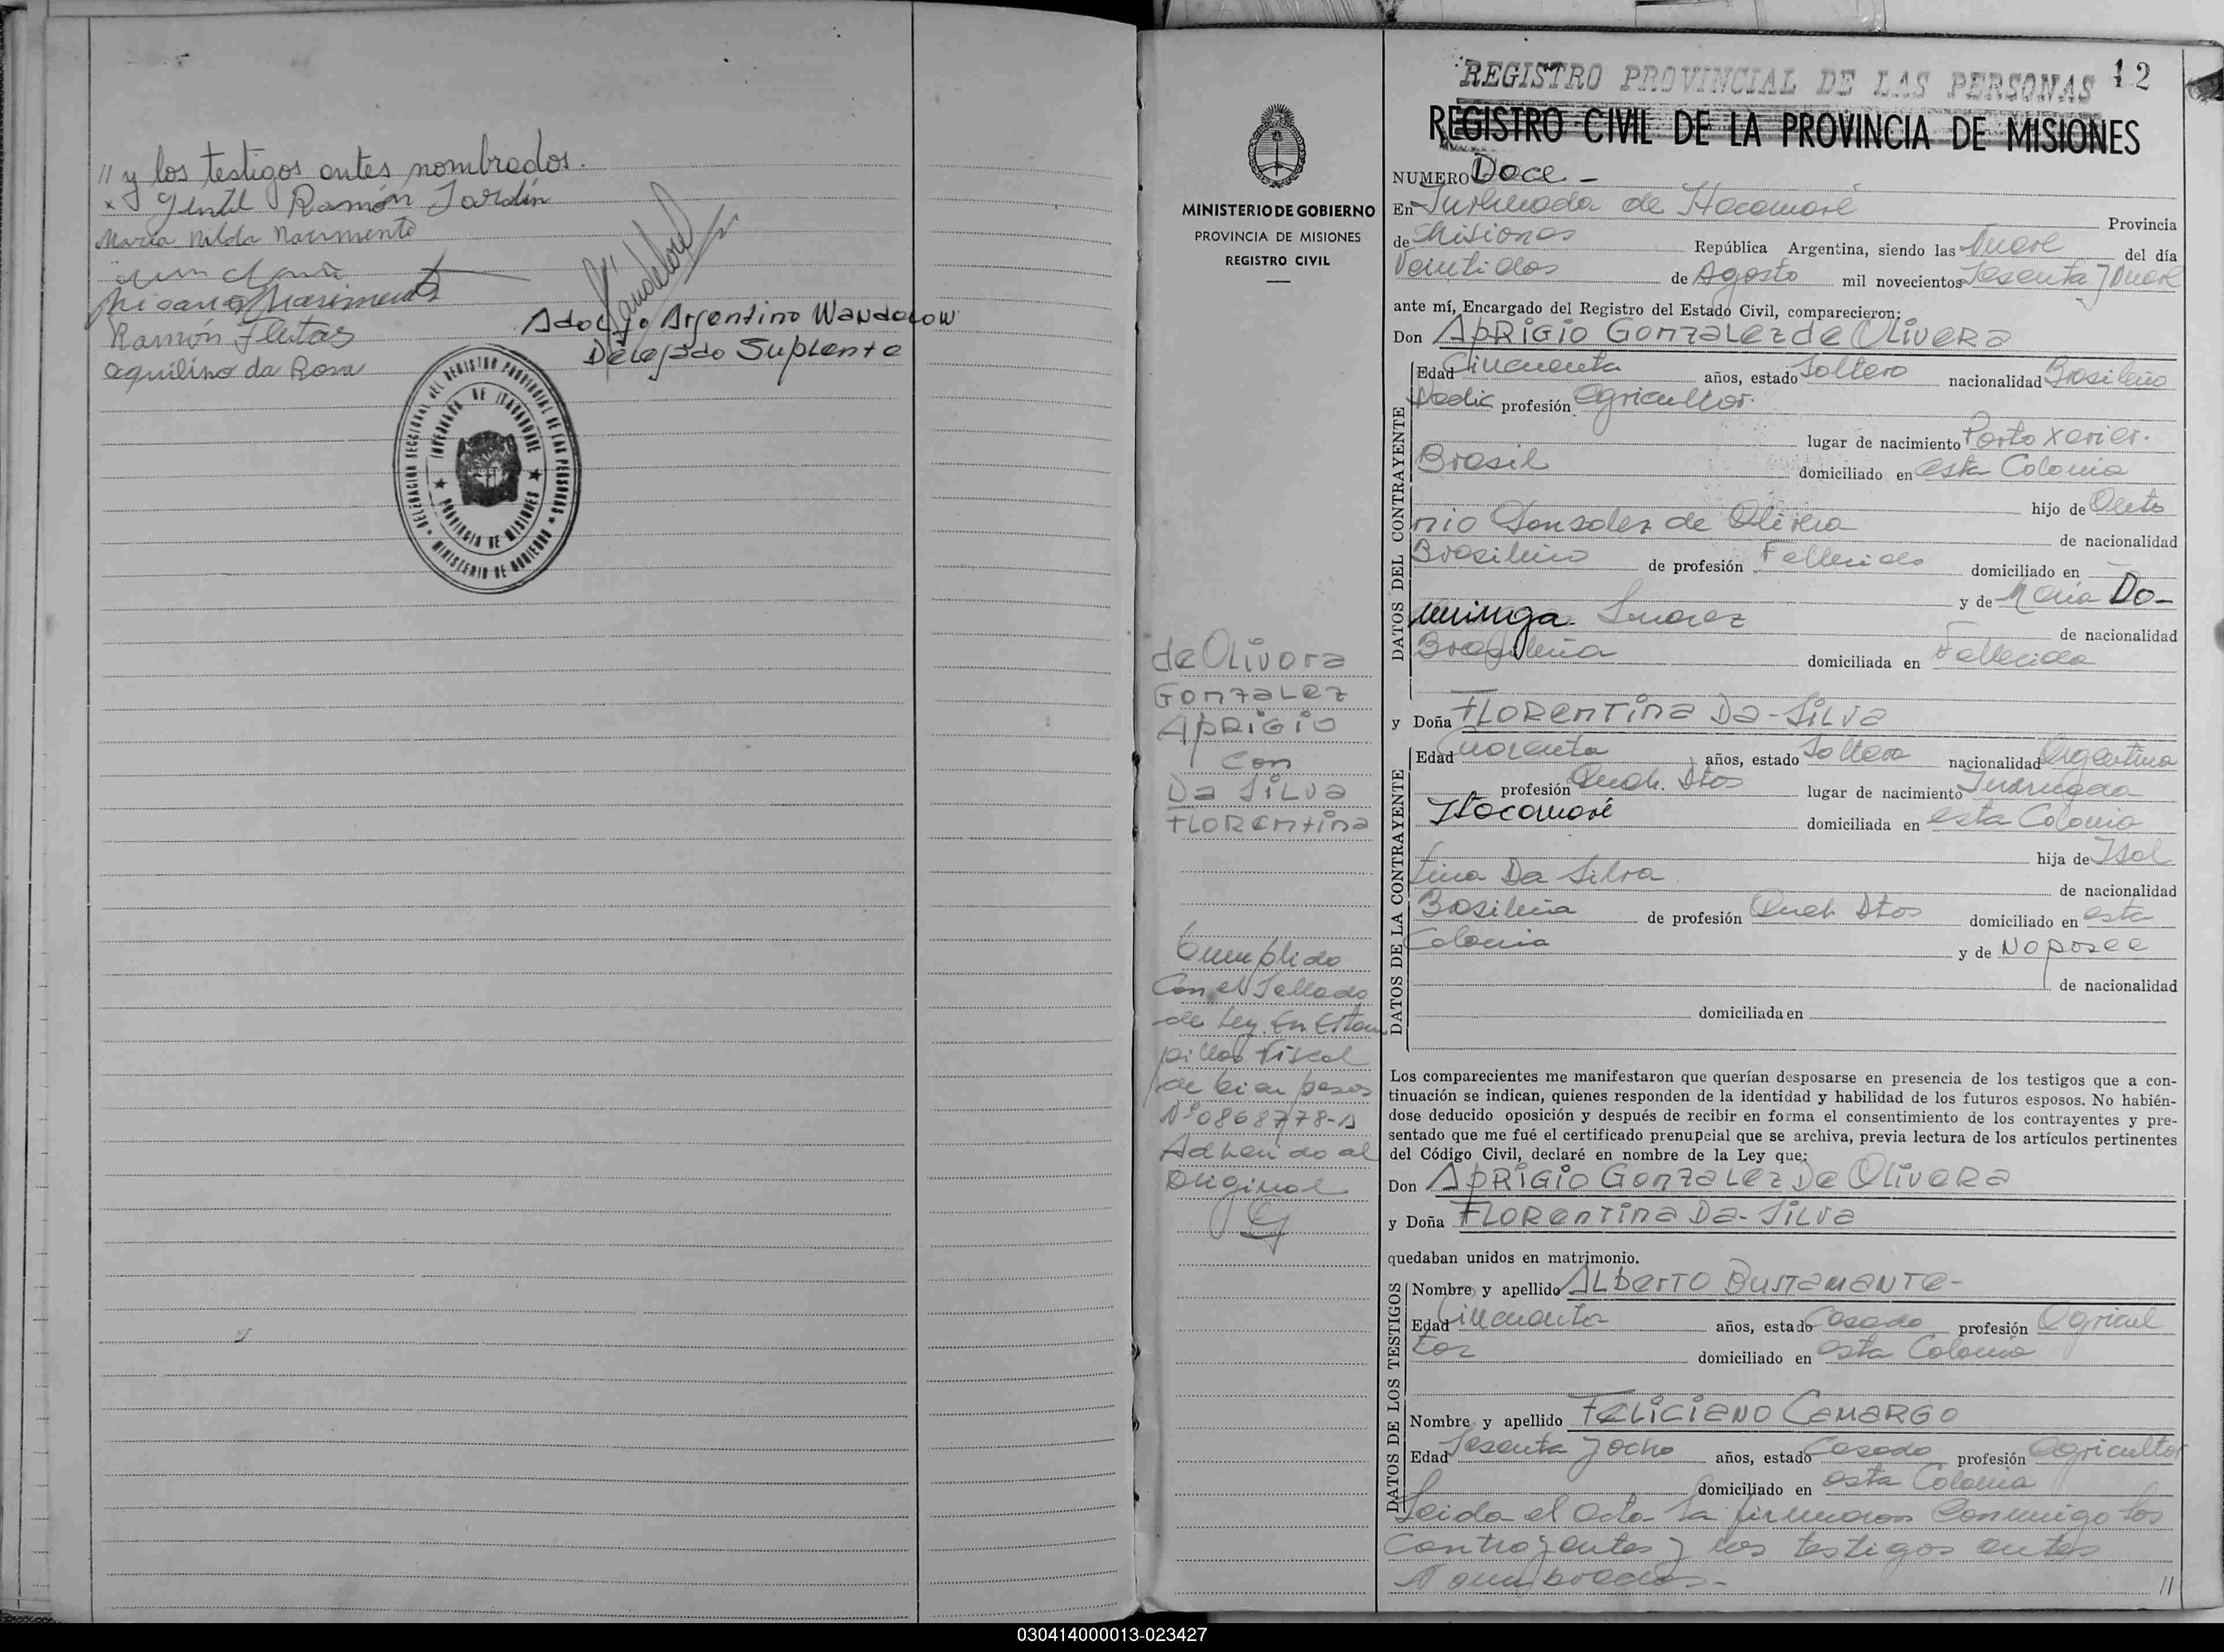 " y los testigos antes nombrados.
x Gentil Ramón Jardín
María Nilda Nacimento
Ramón Fleitas
Aquilino da Rosa
Adolfo Argentino Wandolow
Delegado Suplente
DELEGACION SECCIONAL DEL REGISTRO PROVINCIAL DE LAS PERSONAS
MINISTERIO DE GOBIERNO
PROVINCIA DE MISIONES
REGISTRO PROVINCIAL DE LAS PERSONAS 12
REGISTRO CIVIL DE LA PROVINCIA DE MISIONES
MINISTERIO DE GOBIERNO
PROVINCIA DE MISIONES
REGISTRO CIVIL
de Olivera
Gonzalez
Aprigio
Con
Da Silva
Florentina
Cumplido
Con el Sellado
de Ley. En Estam
pillas Fiscal
de cien pesos
Nº 0868778-A
Adherido al
Original
NUMERO Doce -
En Itacaruaré Provincia
de Misiones República Argentina, siendo las Nueve del día
Veintidos de Agosto mil novecientos Sesenta y Nueve
ante mí, Encargado del Registro del Estado Civil, comparecieron:
Don Aprigio Gonzalez de Olivera
DATOS DEL CONTRAYENTE
Edad Cincuenta años, estado Soltero nacionalidad Brasileño
profesión Agricultor.
lugar de nacimiento Porto Xavier.
Brasil domiciliado en esta Colonia
hijo de Anto
nio Gonzalez de Olivera de nacionalidad
Brasileño de profesión Fallecido domiciliado en —
y de María Do-
minga Suarez de nacionalidad
Brasileña domiciliada en Fallecida
y Doña Florentina Da-Silva
DATOS DE LA CONTRAYENTE
Edad Cuarenta años, estado Soltera nacionalidad Argentina
profesión Queh. Dtos lugar de nacimiento
domiciliada en esta Colonia
hija de Isol
tina Da Silva de nacionalidad
Brasileña de profesión Queh. Dtos domiciliado en esta
Colonia y de No posee
de nacionalidad
domiciliada en
Los comparecientes me manifestaron que querían desposarse en presencia de los testigos que a con-
tinuación se indican, quienes responden de la identidad y habilidad de los futuros esposos. No habién-
dose deducido oposición y después de recibir en forma el consentimiento de los contrayentes y pre-
sentado que me fué el certificado prenupcial que se archiva, previa lectura de los artículos pertinentes
del Código Civil, declaré en nombre de la Ley que:
Don Aprigio Gonzalez De Olivera
y Doña Florentina Da-Silva
quedaban unidos en matrimonio.
DATOS DE LOS TESTIGOS
Nombre y apellido Alberto Bustamante-
Edad Cincuenta años, estado Casado profesión Agricul
tor domiciliado en esta Colonia
Nombre y apellido Feliciano Camargo
Edad Sesenta y ocho años, estado Casado profesión Agricultor
domiciliado en esta Colonia
Leida el Acta la firmaron Conmigo los
Contrayentes y los testigos antes
Nombrados.- "
030414000013-023427